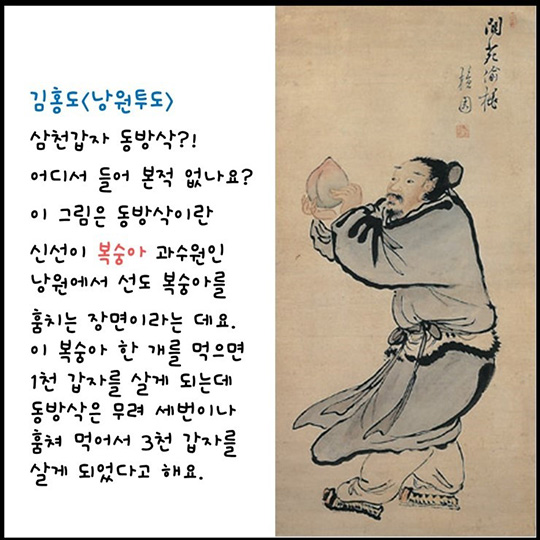 김홍도<낭원투도>
삼천갑자 동방삭?!
어디서 들어 본적 없나요?
이 그림은 동방삭이란
신선이 복숭아 과수원인
낭원에서 선도 복숭아를
훔치는 장면이라는 데요.
이 복숭아 한 개를 먹으면
1천 갑자를 살게 되는데
동방삭은 무려 세번이나
훔쳐 먹어서 3천 갑자를
살게 되었다고 해요.
閬苑偸桃
檀園